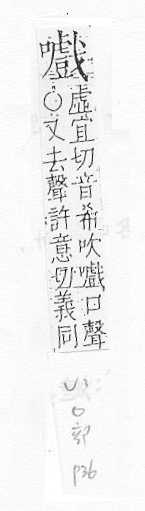 嚱
虛宜切音希吹嚱口聲
○又去聲許意切義同
U3
口部
p36